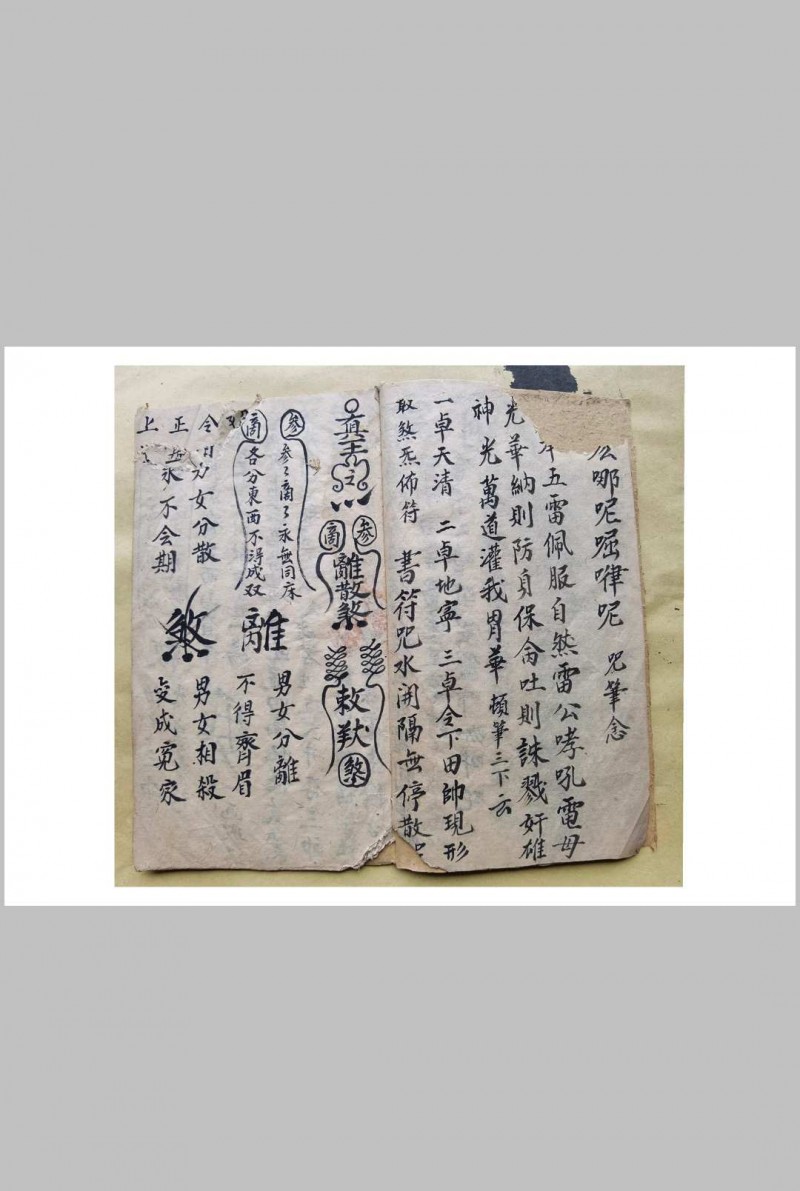 哪呢啒嚀呢 咒筆念
五雷佩服自然雷公哮吼電母
光華納則防身保命吐則誅戮奸雄
神光萬道灌我胃華 頓筆三下云
一卓天清 二卓地寧 三卓令下田帥現形
取煞炁佈符 書符咒水開隔無停散
參 商 離散煞
敕 煞
參 參〻商〻永無同床
商 各分東西不得成双
離 男女分離
不得齊眉
男女分散
煞 男女相殺
正
上
永不会期
变成寃家